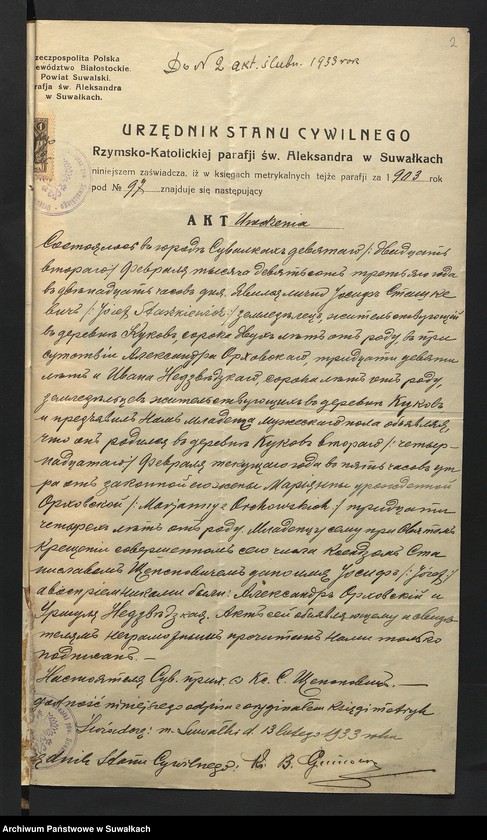 2
Do N 2 akt. ślubn. 1933 rok
Rzeczpospolita Polska
Województwo Białostockie.
Powiat Suwalski.
Parafja św. Aleksandra
w Suwałkach.
URZĘDNIK STANU CYWILNEGO
Rzymsko-Katolickiej parafji św. Aleksandra w Suwałkach
niniejszem zaświadcza, iż w księgach metrykalnych tejże parafji za 1903 rok
pod № 97 znajduje się następujący
AKT Urodzenia
Состоялось въ городѣ Сувалкахъ девятаго /: двадцать
втораго/ Февраля тысяча девятьсотъ третьяго года
въ двѣнадцать часовъ дня. Явился лично Іосифъ Станке
вичъ /: Józef Stankiewicz :/ земледѣлецъ, жительствующій
въ деревнѣ Куковъ, сорока двухъ лѣтъ отъ роду въ при
сутствіи Александра Орховскаго, тридцати девяти
лѣтъ и Ивана Недзвѣдзкаго, сорока лѣтъ отъ роду,
земледѣльцевъ жительствующихъ въ деревнѣ Куковъ
и предъявилъ Намъ младенца мужескаго пола объявляя,
что онъ родился въ деревнѣ Куковъ втораго /: четыр-
надцатаго/ Февраля текущаго года въ пять часовъ ут
ра отъ законной его жены Маріянны урожденной
Орховской /: Marjanny z Orchowskich :/ тридцати
четырехъ лѣтъ отъ роду. Младенцу сему при Святомъ
Крещеніи совершенномъ сего числа Ксендзомъ Ста
ниславомъ Щепановичемъ дано имя Іосифъ /: Józef :/
а воспріемниками были: Александръ Орловскій и
Уршуля Недзвѣдзкая. Актъ сей объявляющему и свидѣ
телямъ неграмотнымъ прочитанъ Нами только
подписанъ. —
Настоятель Сув. прих. Кс. С. Щепановичъ. —
zgodność niniejszego odpisu z oryginałem księgi metryk
świadczę: m. Suwałki d. 13 lutego 1933 roku
Urzędnik Stanu Cywilnego: Ks. B.
Archiwum Państwowe w Suwałkach